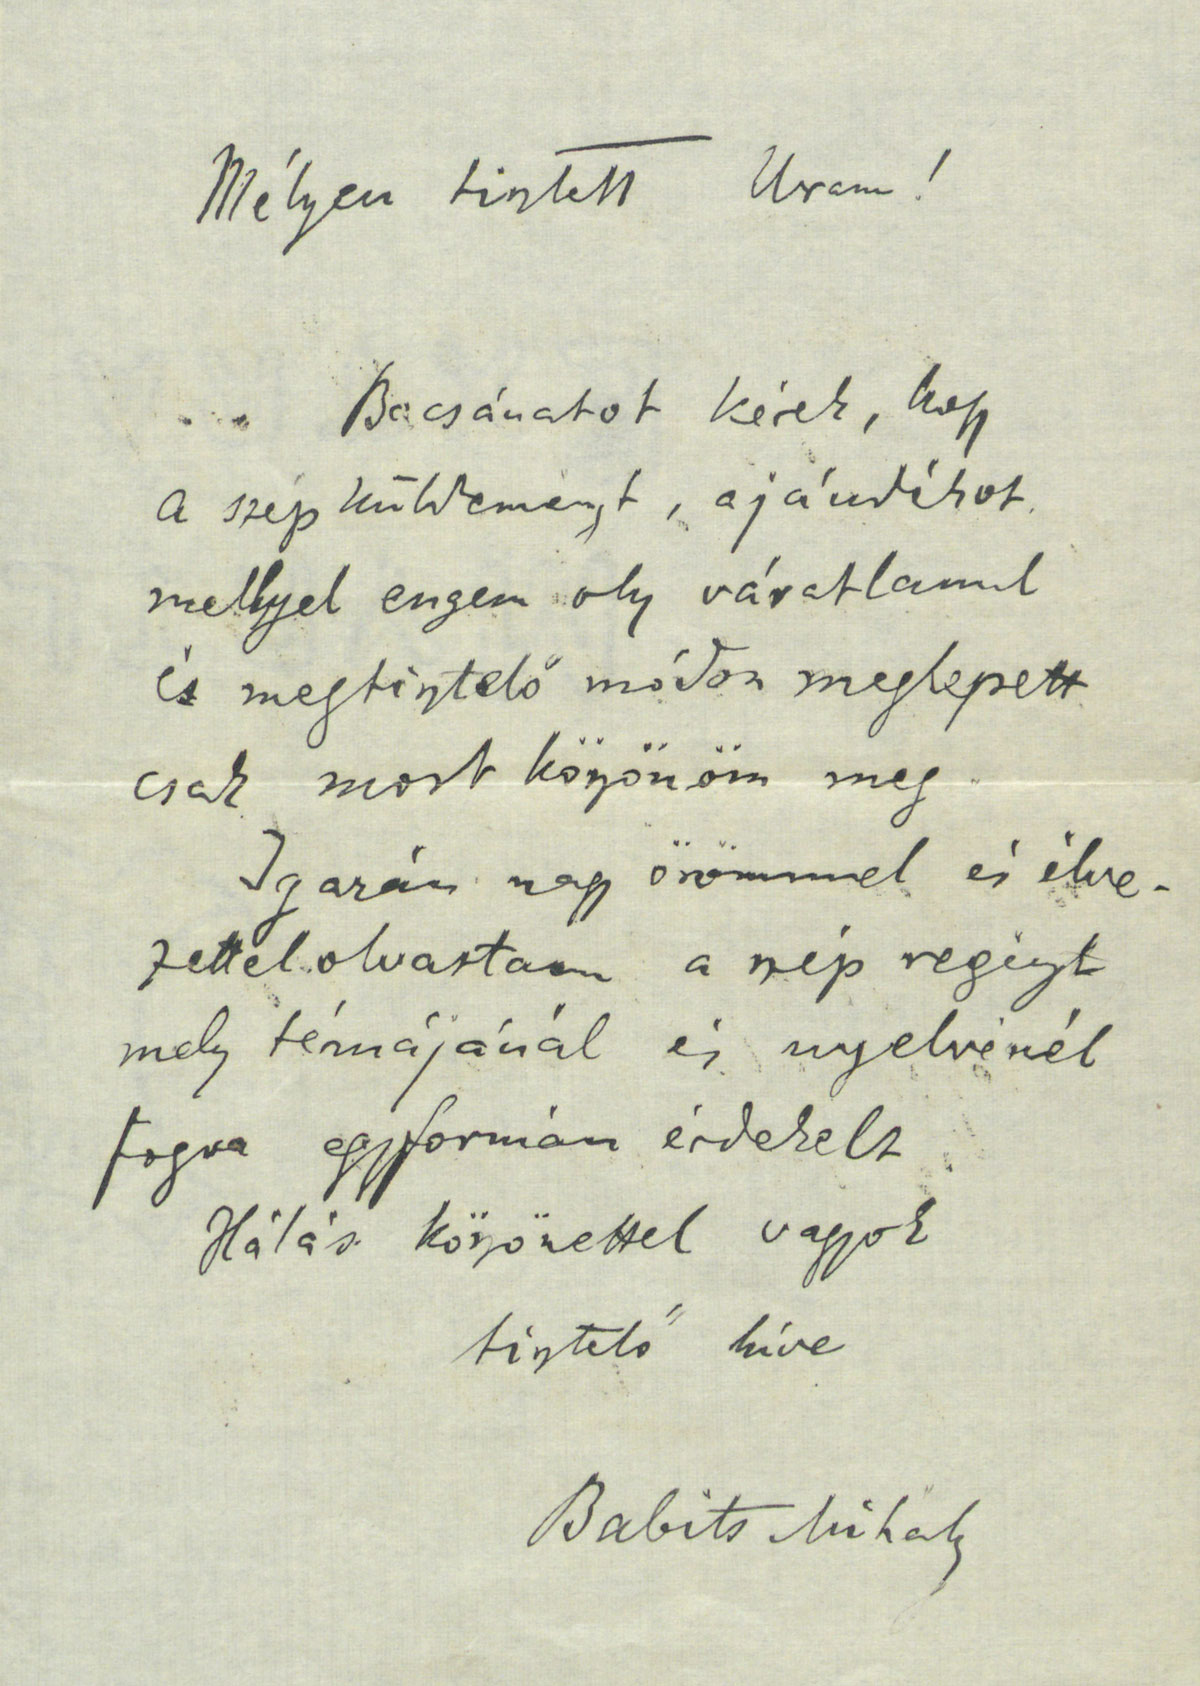 Mélyen tisztelt Uram!
Bocsánatot kérek, hogy
a szép küldeményt, ajándékot
mellyel engem oly váratlanul
és megtisztelő módon meglepett
csak most köszönöm meg
Igazán nagy örömmel és élve-
zettel olvastam a szép regényt
mely témájánál és nyelvénél
fogva egyformán érdekelt
Hálás köszönettel vagyok
tisztelő híve
Babits Mihály